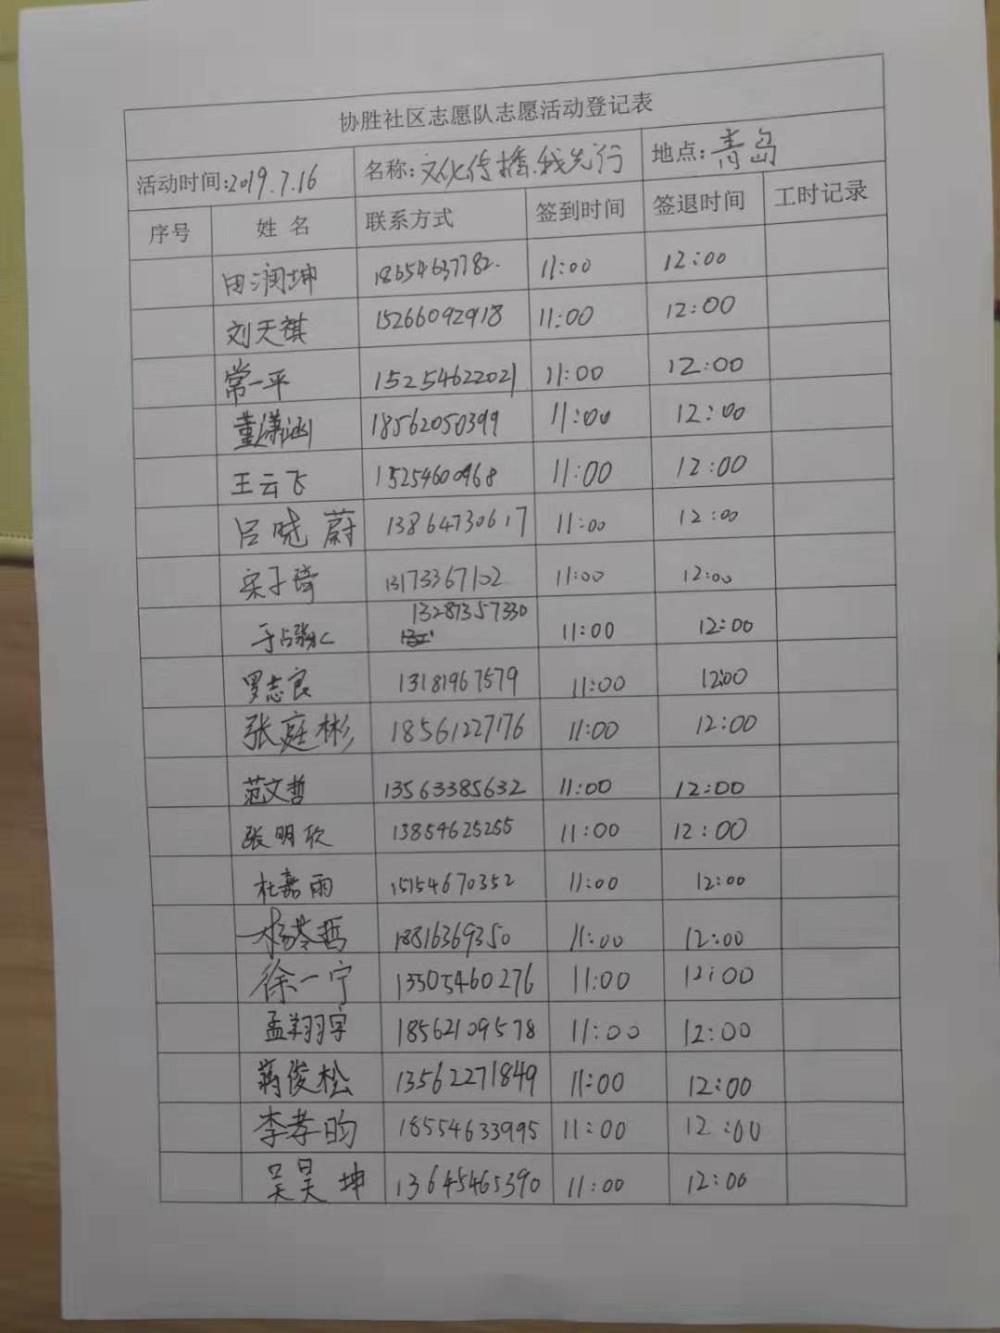 协胜社区志愿队志愿活动登记表
活动时间:2019.7.16 名称:文化传播.我先行 地点:青岛
序号 姓名 联系方式 签到时间 签退时间 工时记录
田润坤 18654637782. 11:00 12:00
刘天祺 15266092918 11:00 12:00
常一平 15254622021 11:00 12:00
董潇涵 18562050399 11:00 12:00
王云飞 15254600468 11:00 12:00
吕晓蔚 13864730617 11:00 12:00
宋子琦 13173367102 11:00 12:00
13287357330 11:00 12:00
罗志良 13181967579 11:00 12:00
张庭彬 18561227176 11:00 12:00
范文哲 13563385632 11:00 12:00
张明欣 13854625255 11:00 12:00
杜嘉雨 15154670352 11:00 12:00
18816369350 11:00 12:00
徐一宁 13505460276 11:00 12:00
孟翔宇 18562109578 11:00 12:00
蒋俊松 13562271849 11:00 12:00
李孝昀 18554633995 11:00 12:00
吴昊坤 13645465390 11:00 12:00